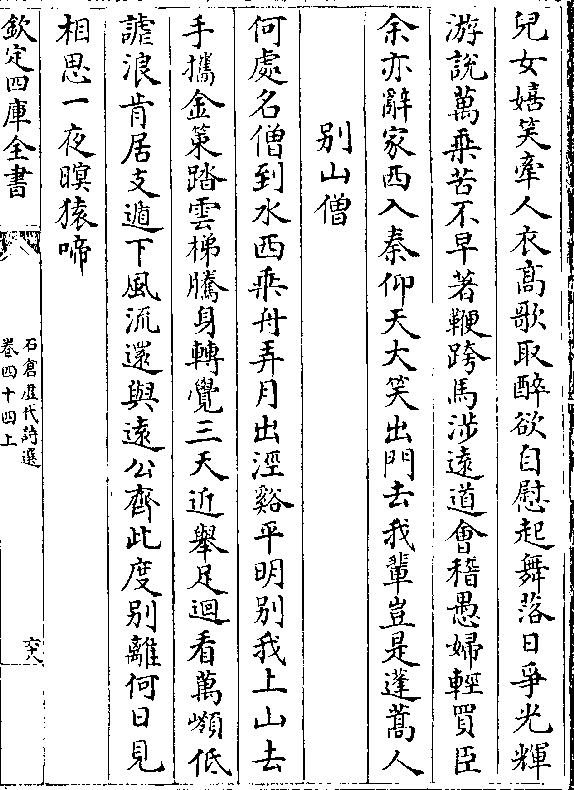 兒女嬉笑牽人衣髙歌取醉欲自慰起舞落日爭光輝
游說萬乗苦不早著鞭跨馬涉遠道㑹稽愚婦輕買臣
余亦辭家西入秦仰天大笑出門去我輩豈是蓬蒿人
别山僧
何處名僧到水西乗舟弄月出涇谿平明别我上山去
手攜金策踏雲梯騰身轉覺三天近舉足迴看萬嶺低
謔浪肯居支遁下風流還與逺公齊此度别離何日見
相思一夜暝猿啼
欽定四庫全書
石倉歷代詩選
卷四十四上